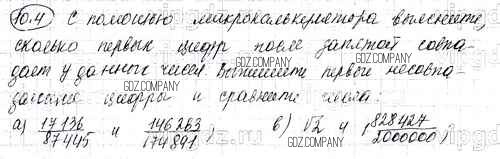 10.4 С помощью микрокалькулятора выясните,
сколько первых цифр после запятой совпа-
дает у данных чисел. Выпишите первые несовпа-
дающие цифры и сравните числа:
а) 17136/87445 и 146263/174891; в) √2 и 828427/2000000;
GDZ.COMPANY
GDZ.COMPANY
GDZ.COMPANY
GDZ.COMPANY
GDZ.COMPANY
GDZ.COMPANY